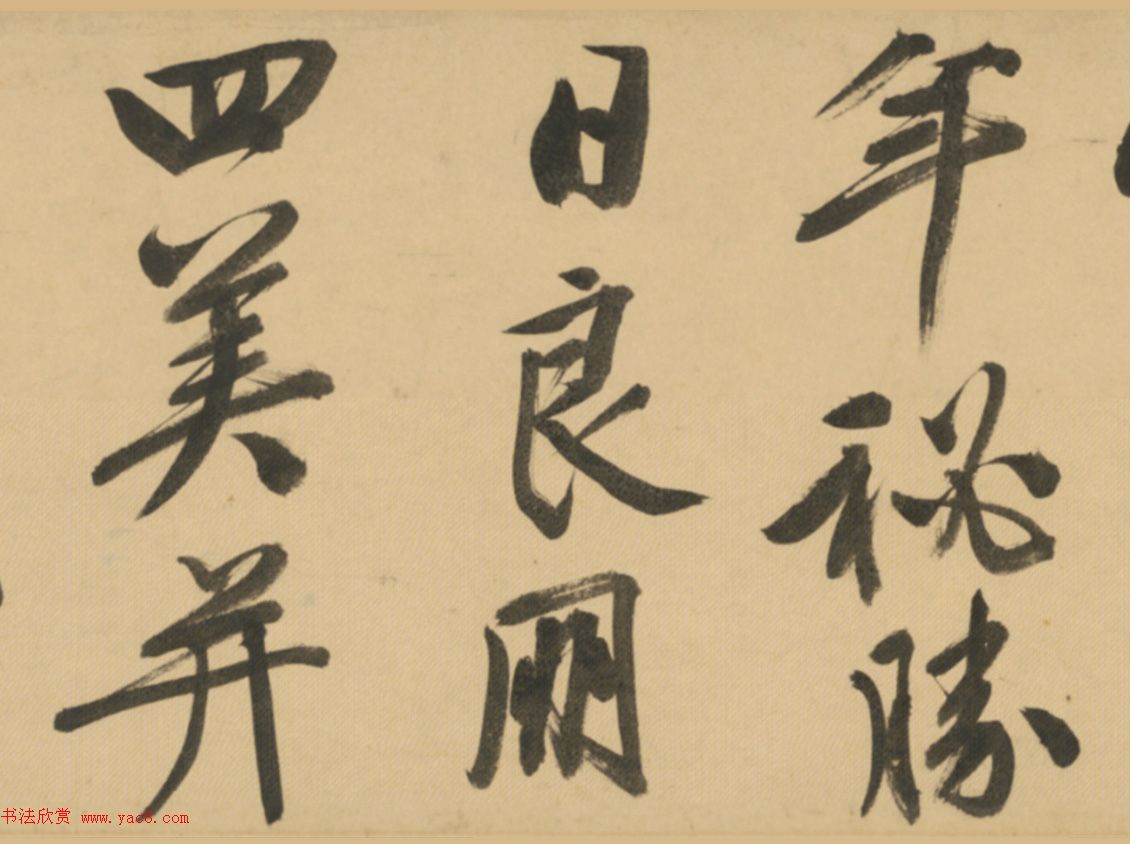 年秘勝
日良朋
四美并
书法欣赏 www.yac8.com